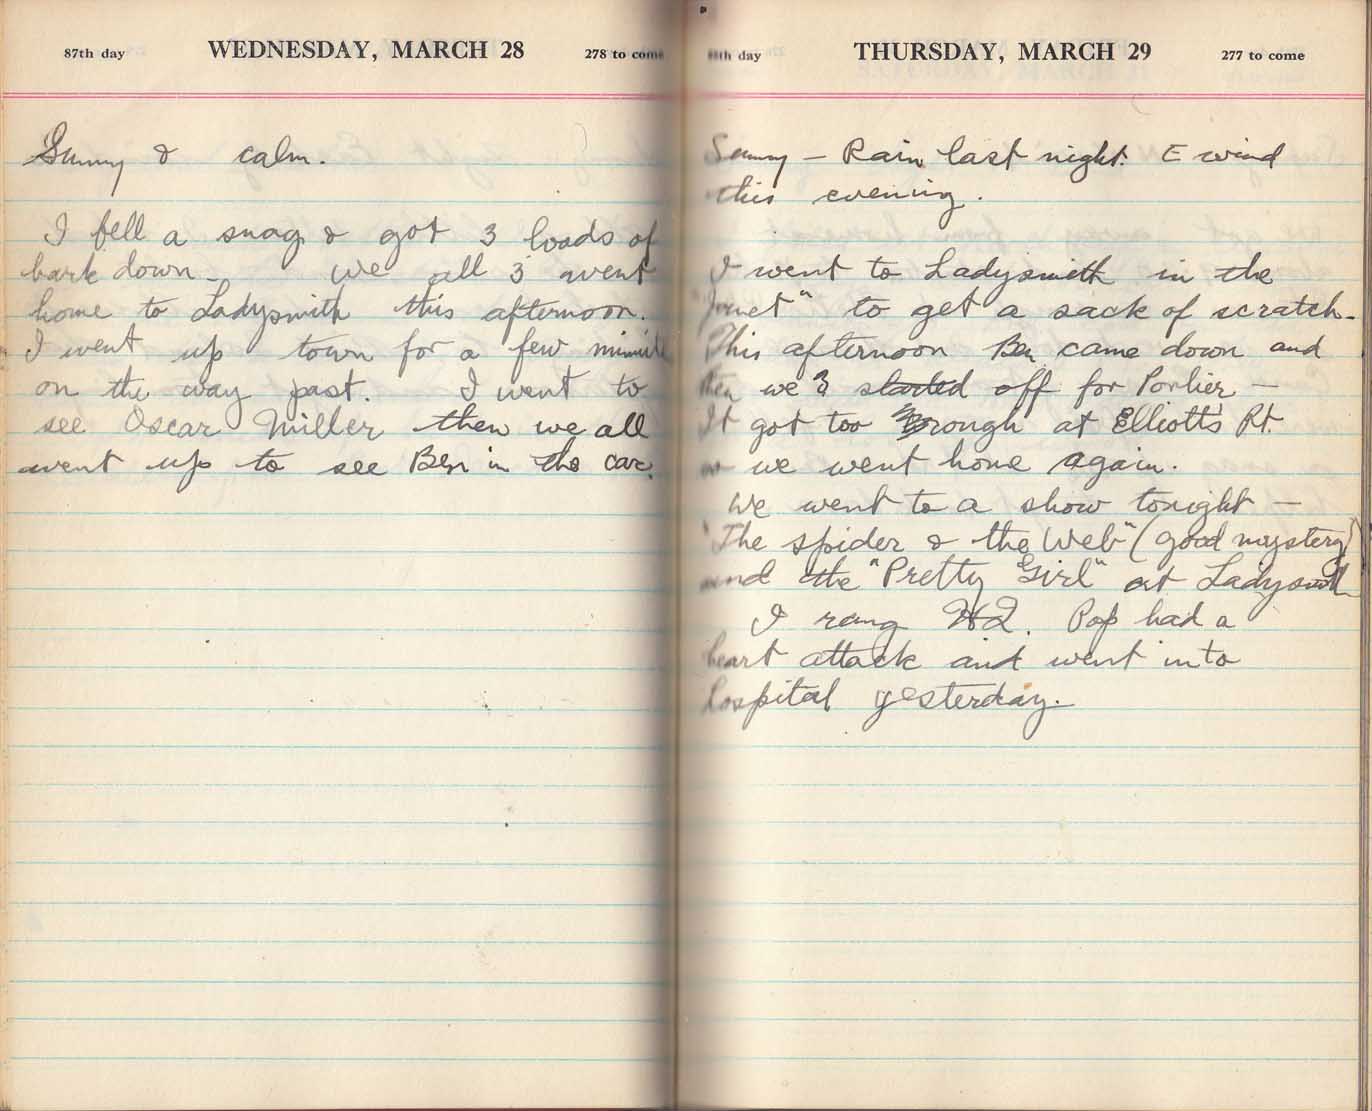 87th day WEDNESDAY, MARCH 28 278 to come
Sunny & calm.
I fell a snag & got 3 loads of
bark down - we all 3 went
home to Ladysmith this afternoon.
I went up town for a few
on the way past. I went to
see Oscar Miller then we all
went up to see Ben in the car.
88th day THURSDAY, MARCH 29 277 to come
Sunny - Rain last night. E wind
this evening.
I went to Ladysmith in the
to get a sack of scratch.
This afternoon Ben came down and
then we 3 started off for Porlier -
It got too rough at Elliott's Pt
we went home again.
We went to a show tonight -
"The spider & the Web" (good mystery)
and the "Pretty Girl" at Ladysmith
I rang HQ. Pop had a
heart attack and went into
hospital yesterday.